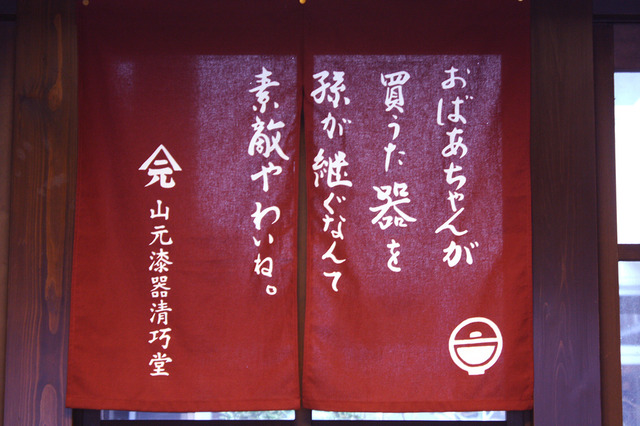 おばあちゃんが
買うた器を
孫が継ぐなんて
素敵やわいね。
元
山元漆器清巧堂